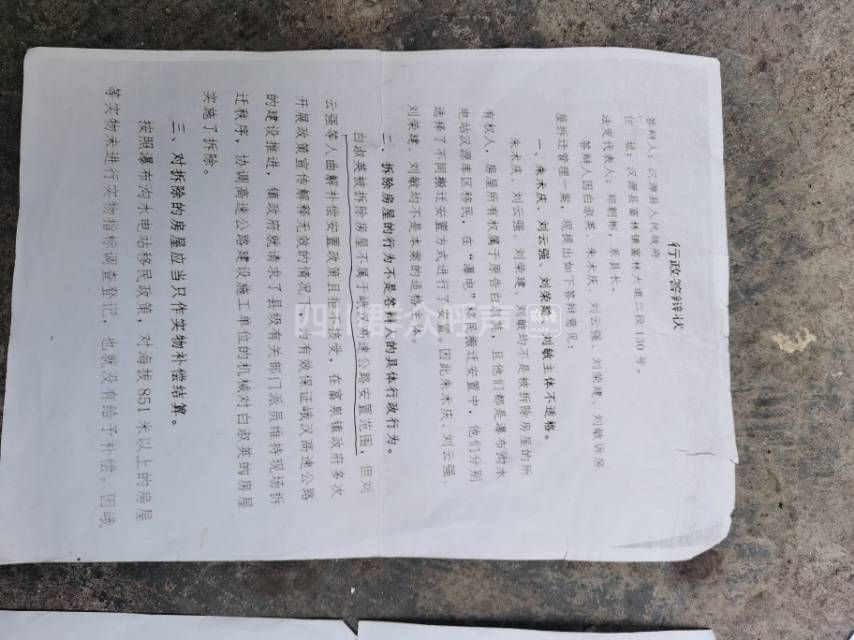 行政答辩状
答辩人：汉源县人民政府
住 址：汉源县富林镇富林大道二段130号。
法定代表人：郑朝彬，系县长。
答辩人因白淑英、朱术庆、刘云强、刘荣建、刘敏诉房
屋拆迁管理一案，现提出如下答辩意见：
一、朱术庆、刘云强、刘荣建、刘敏主体不适格。
朱术庆、刘云强、刘荣建、刘敏均不是被拆除房屋的所
有权人，房屋所有权属于原告白淑英，且他们都是瀑布沟水
电站汉源库区移民，在“瀑电”移民搬迁安置中，他们分别
选择了不同搬迁安置方式进行了安置。因此朱术庆、刘云强、
刘荣建、刘敏均不是本案的适格主体
二、拆除房屋的行为不是答辩人的具体行政行为。
白淑英被拆除房屋不属于峨汉高速公路安置范围，但刘
云强等人曲解补偿安置政策且拒不接受，在富泉镇政府多次
开展政策宣传解释无效的情况下，为有效保证峨汉高速公路
的建设推进，镇政府就请求了县级有关部门派员维持现场拆
迁秩序，协调高速公路建设施工单位的机械对白淑英的房屋
实施了拆除。
三、对拆除的房屋应当只作实物补偿结算。
按照瀑布沟水电站移民政策，对海拔851米以上的房屋
等实物未进行实物指标调查登记，也就没有给予补偿。因峨
四川群众呼声